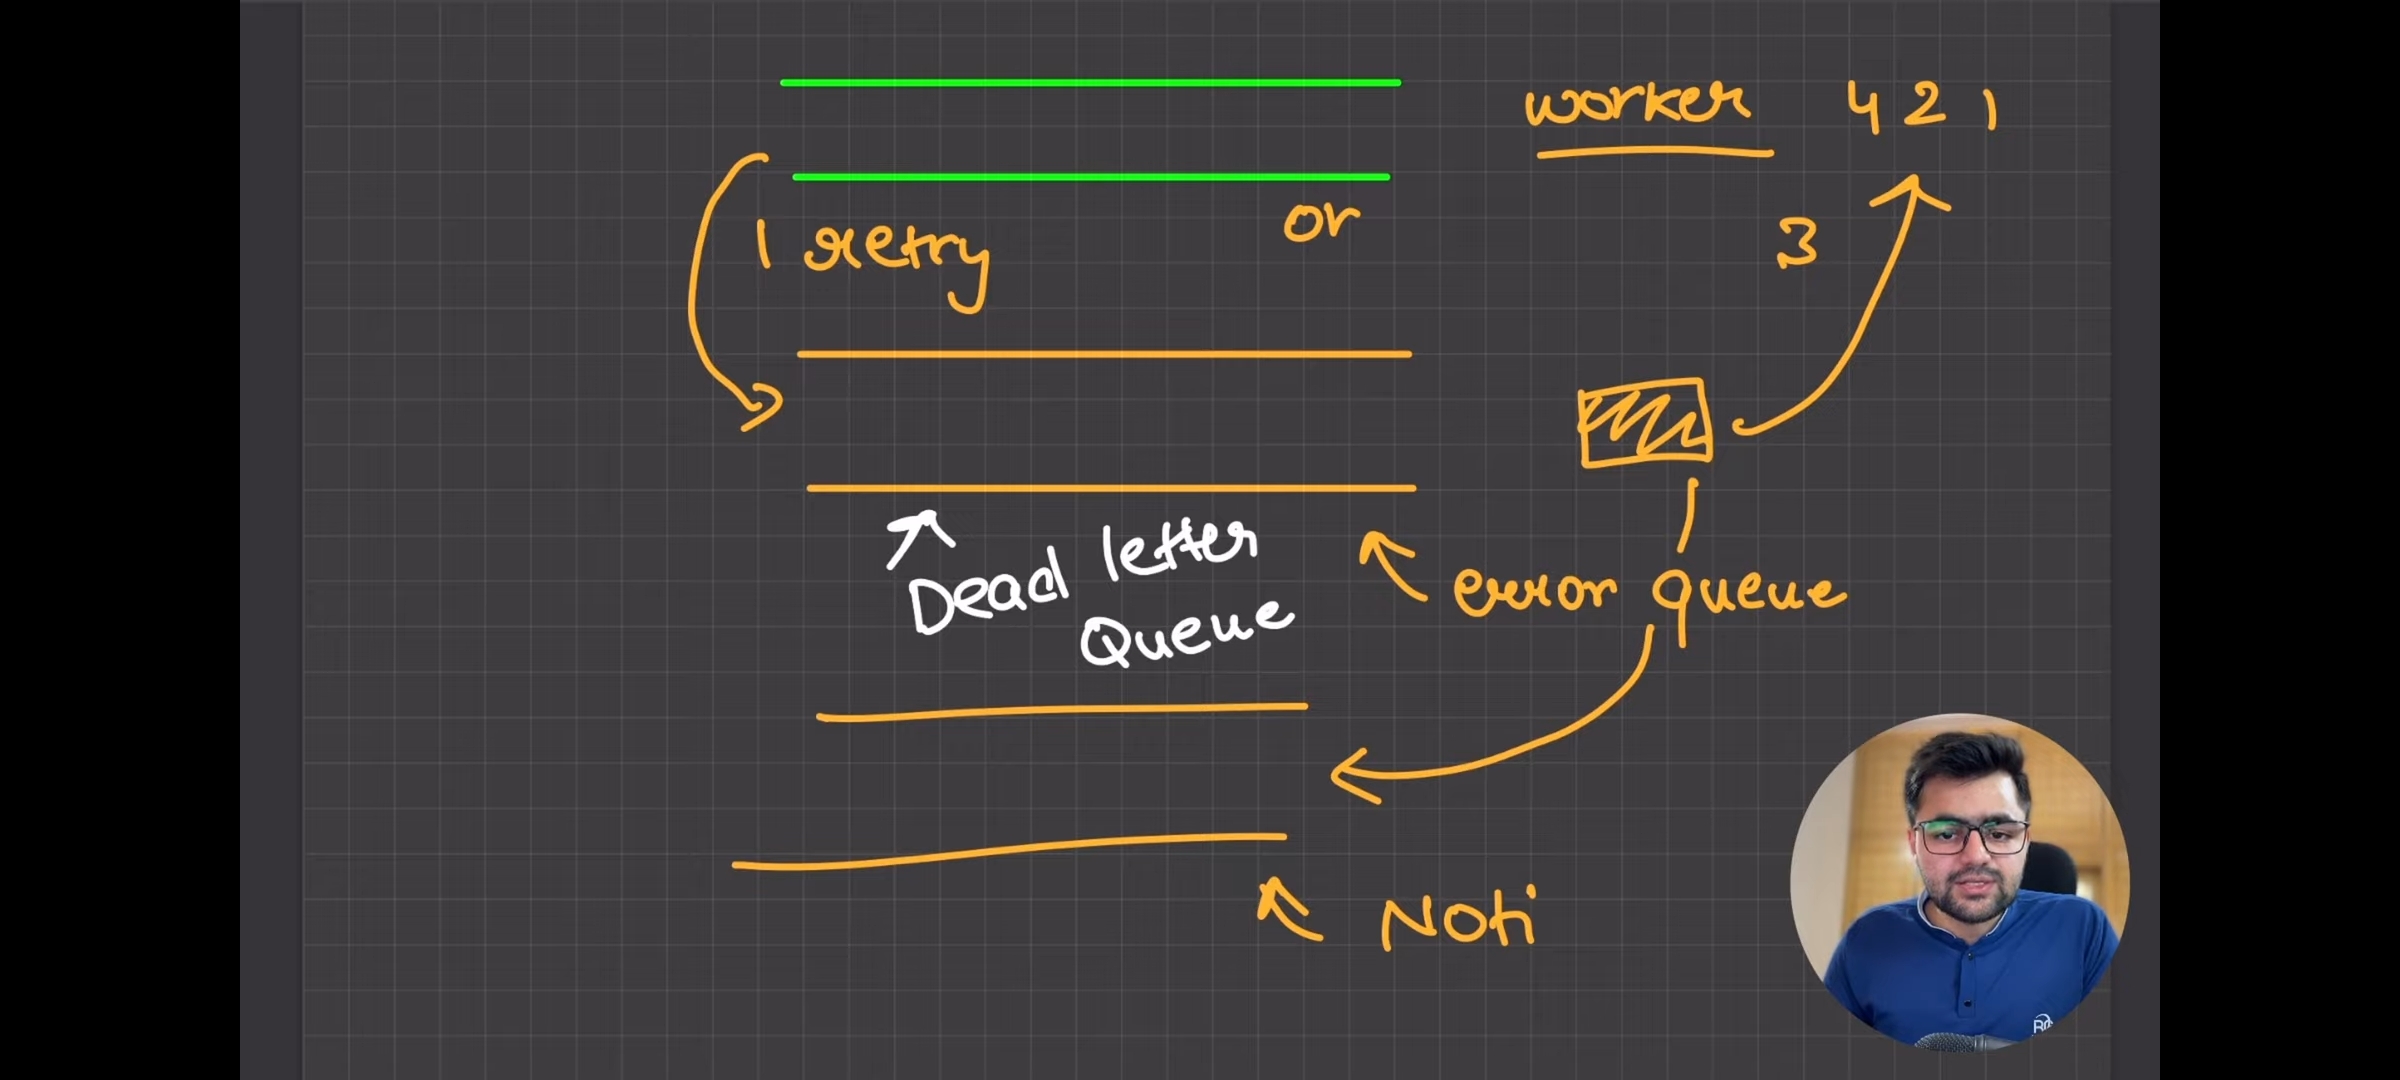 worker 4 2 1
or
1 retry
3
Dead letter
Queue
error queue
Noti